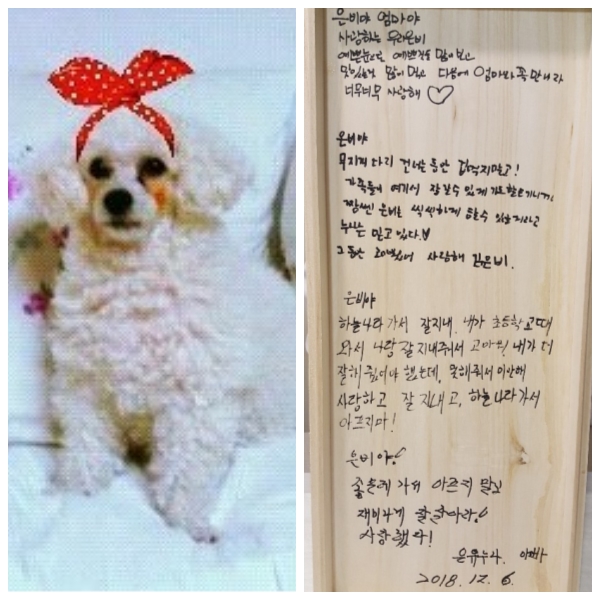 은비야 엄마야
사랑하는 우리은비
예쁜눈으로 예쁜것들 많이보고
맛있는것 많이 먹고 다음에 엄마와 꼭만나자
너무너무 사랑해 ♡
은비야
무지개 다리 건너는 동안 겁먹지말고!
가족들이 여기서 잘갈수 있게 기도할테니까,
짬뽕 은비는 씩씩하게 갈수 있을거라고
누나는 믿고 있다♥
그동안 고마웠어 사랑해 김은비.
은비야
하늘나라가서 잘지내. 내가 초등학교때
와서 나랑 잘지내줘서 고마워! 내가 더
잘해줬어야 했는데, 못해줘서 미안해
사랑하고 잘지내고, 하늘나라가서
아프지마!
은비야!
좋은데 가서 아프지 말고
재미나게 잘살아라!
사랑했다!
은유누나. 아빠
2018. 12. 6.